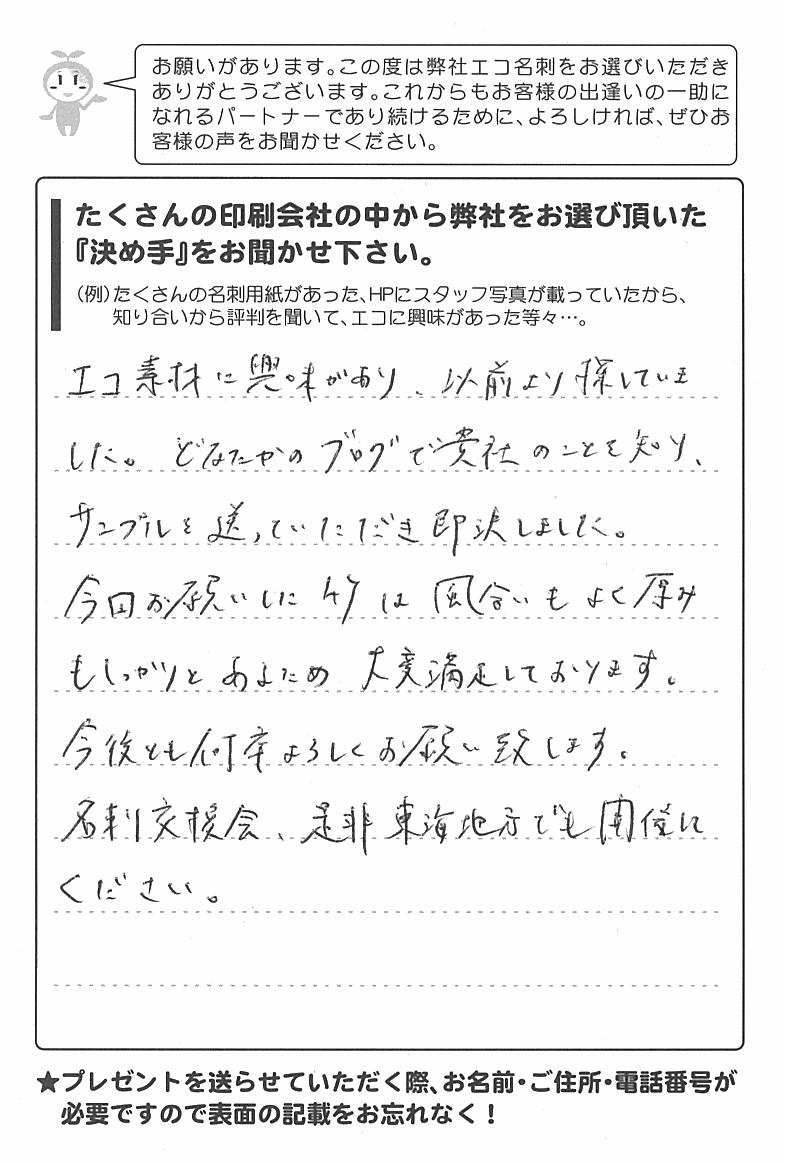 お願いがあります。この度は弊社エコ名刺をお選びいただき
ありがとうございます。これからもお客様の出逢いの一助に
なれるパートナーであり続けるために、よろしければ、ぜひお
客様の声をお聞かせください。
たくさんの印刷会社の中から弊社をお選び頂いた
『決め手』をお聞かせ下さい。
(例)たくさんの名刺用紙があった、HPにスタッフ写真が載っていたから、
知り合いから評判を聞いて、エコに興味があった等々…。
エコ素材に興味があり、以前より探していま
した。どなたかのブログで貴社のことを知り、
サンプルを送っていただき即決しました。
今回お願いした は風合いもよく厚み
もしっかりとあるため大変満足しております。
今後とも何卒よろしくお願い致します。
名刺交換会、是非東海地方でも開催して
ください。
★プレゼントを送らせていただく際、お名前・ご住所・電話番号が
必要ですので表面の記載をお忘れなく!